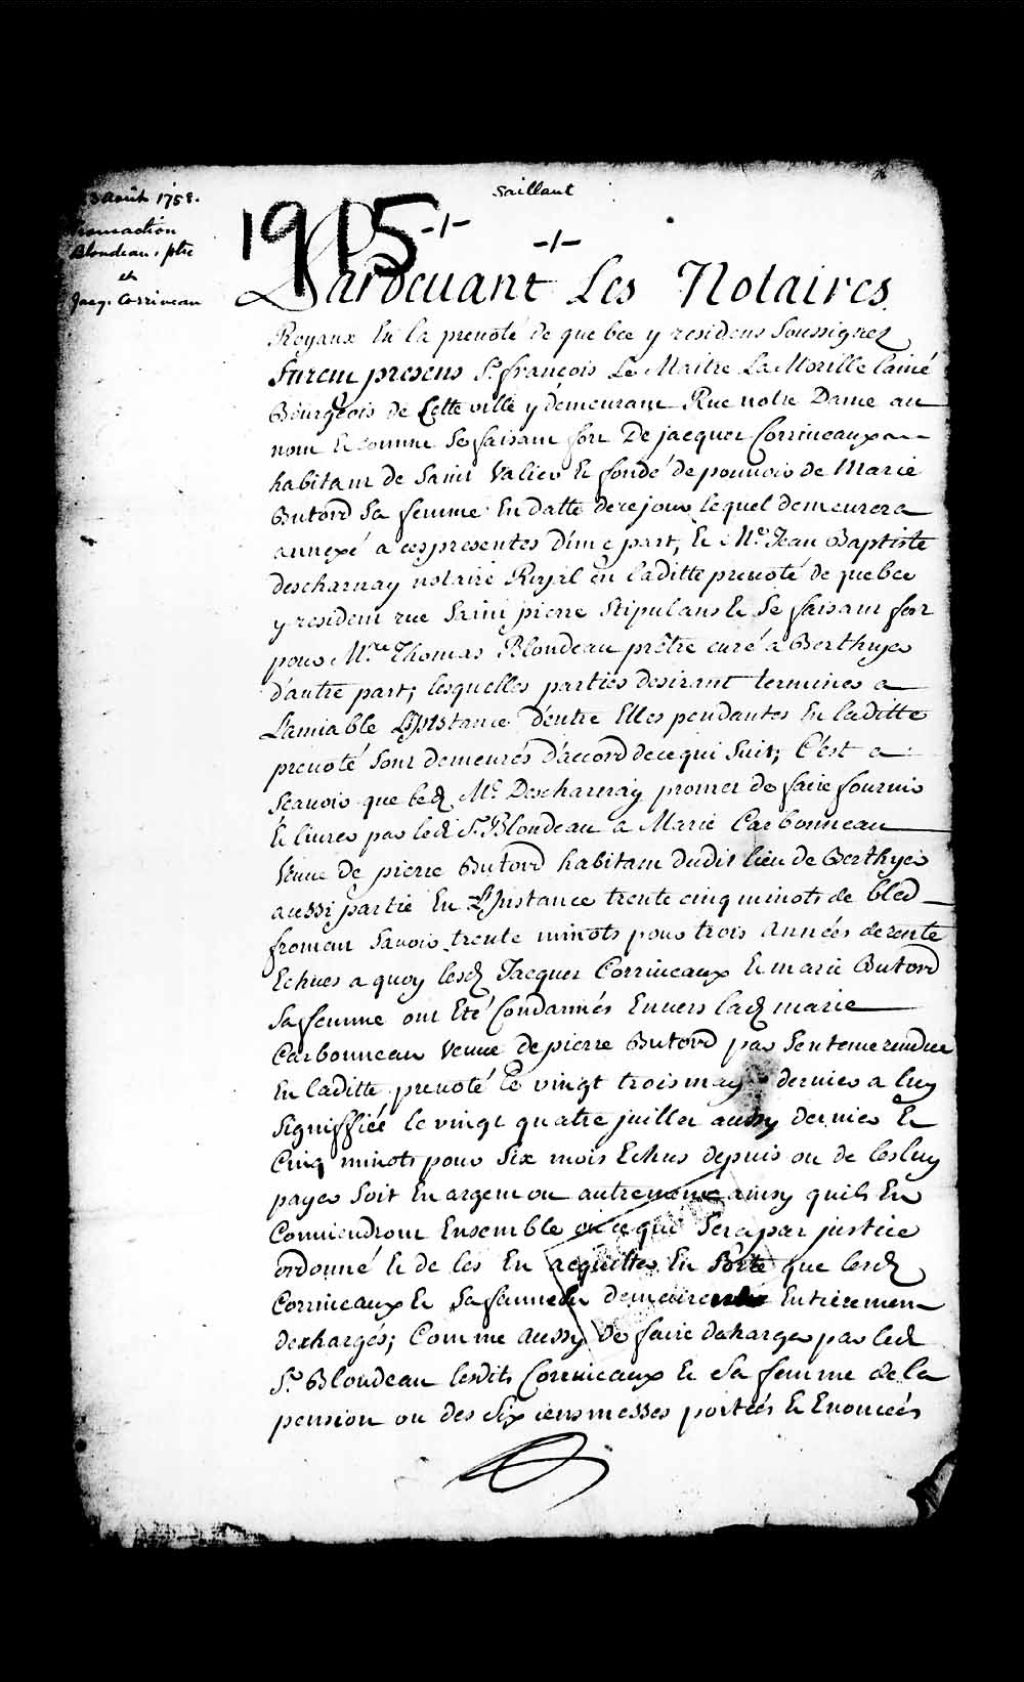 Saillant
3 Août 1758.
Transaction
Blondeau, ptre
et
Jacq. Corriveau
1915 -/-
-/-
Pardevant Les Notaires
Royaux En la prevoté de quebec y residens Soussignez
Furent presens Sr. françois Le Maitre La Morille lainé
Bourgeois de Cette ville y demeurant Rue notre Dame au
nom & comme Se faisant fort De jacques Corriveaux
habitant de Saint Valier & fondé de pouvoir de Marie
Butord Sa femme En datte de ce jour lequel demeurera
annexé a ces presentes D'une part, & Me. Jean Baptiste
descharnay notaire Royal en laditte prevoté de quebec
y resident rue Saint pierre Stipulant & Se faisant fort
pour Mre. Thomas Blondeau prêtre curé a Berthyer
d'autre part; lesquelles parties desirant terminer a
L'amiable L'Instance d'entre Elles pendantes En laditte
prevoté Sont demeurés d'accord de ce qui Suit; C'est a
Scavoir que led. Me. Descharnay promet de faire fournir
& livrer par led. Sr. Blondeau a Marie Carbonneau
Veuve de pierre Butord habitant dudit lieu de Berthyer
aussi partie En L'Instance trente cinq minots de bled
froment Savoir trente minots pour trois Années de rente
Echues a quoy lesd. Jacques Corriveaux & marie Butord
Sa femme ont Eté Condamnés Envers lad. marie
Carbonneau Veuve de pierre Butord par Sentence rendue
En laditte prevoté le vingt trois may dernier a luy
Signiffiée le vingt quatre juillet aussy dernier &
Cinq minots pour Six mois Echus depuis ou de les luy
payer Soit En argent ou autrement ainsy quils En
Conviendront Ensemble ou ce qui Sera par justice
ordonné & de les En acquitter En Sorte que lesd.
Corriveaux & Sa femme En demeurent Entierement
dechargés; Comme aussy De faire decharger par led.
Sr. Blondeau lesdits Corriveaux & Sa femme de la
pension ou des Six cens messes portées & Enoncées